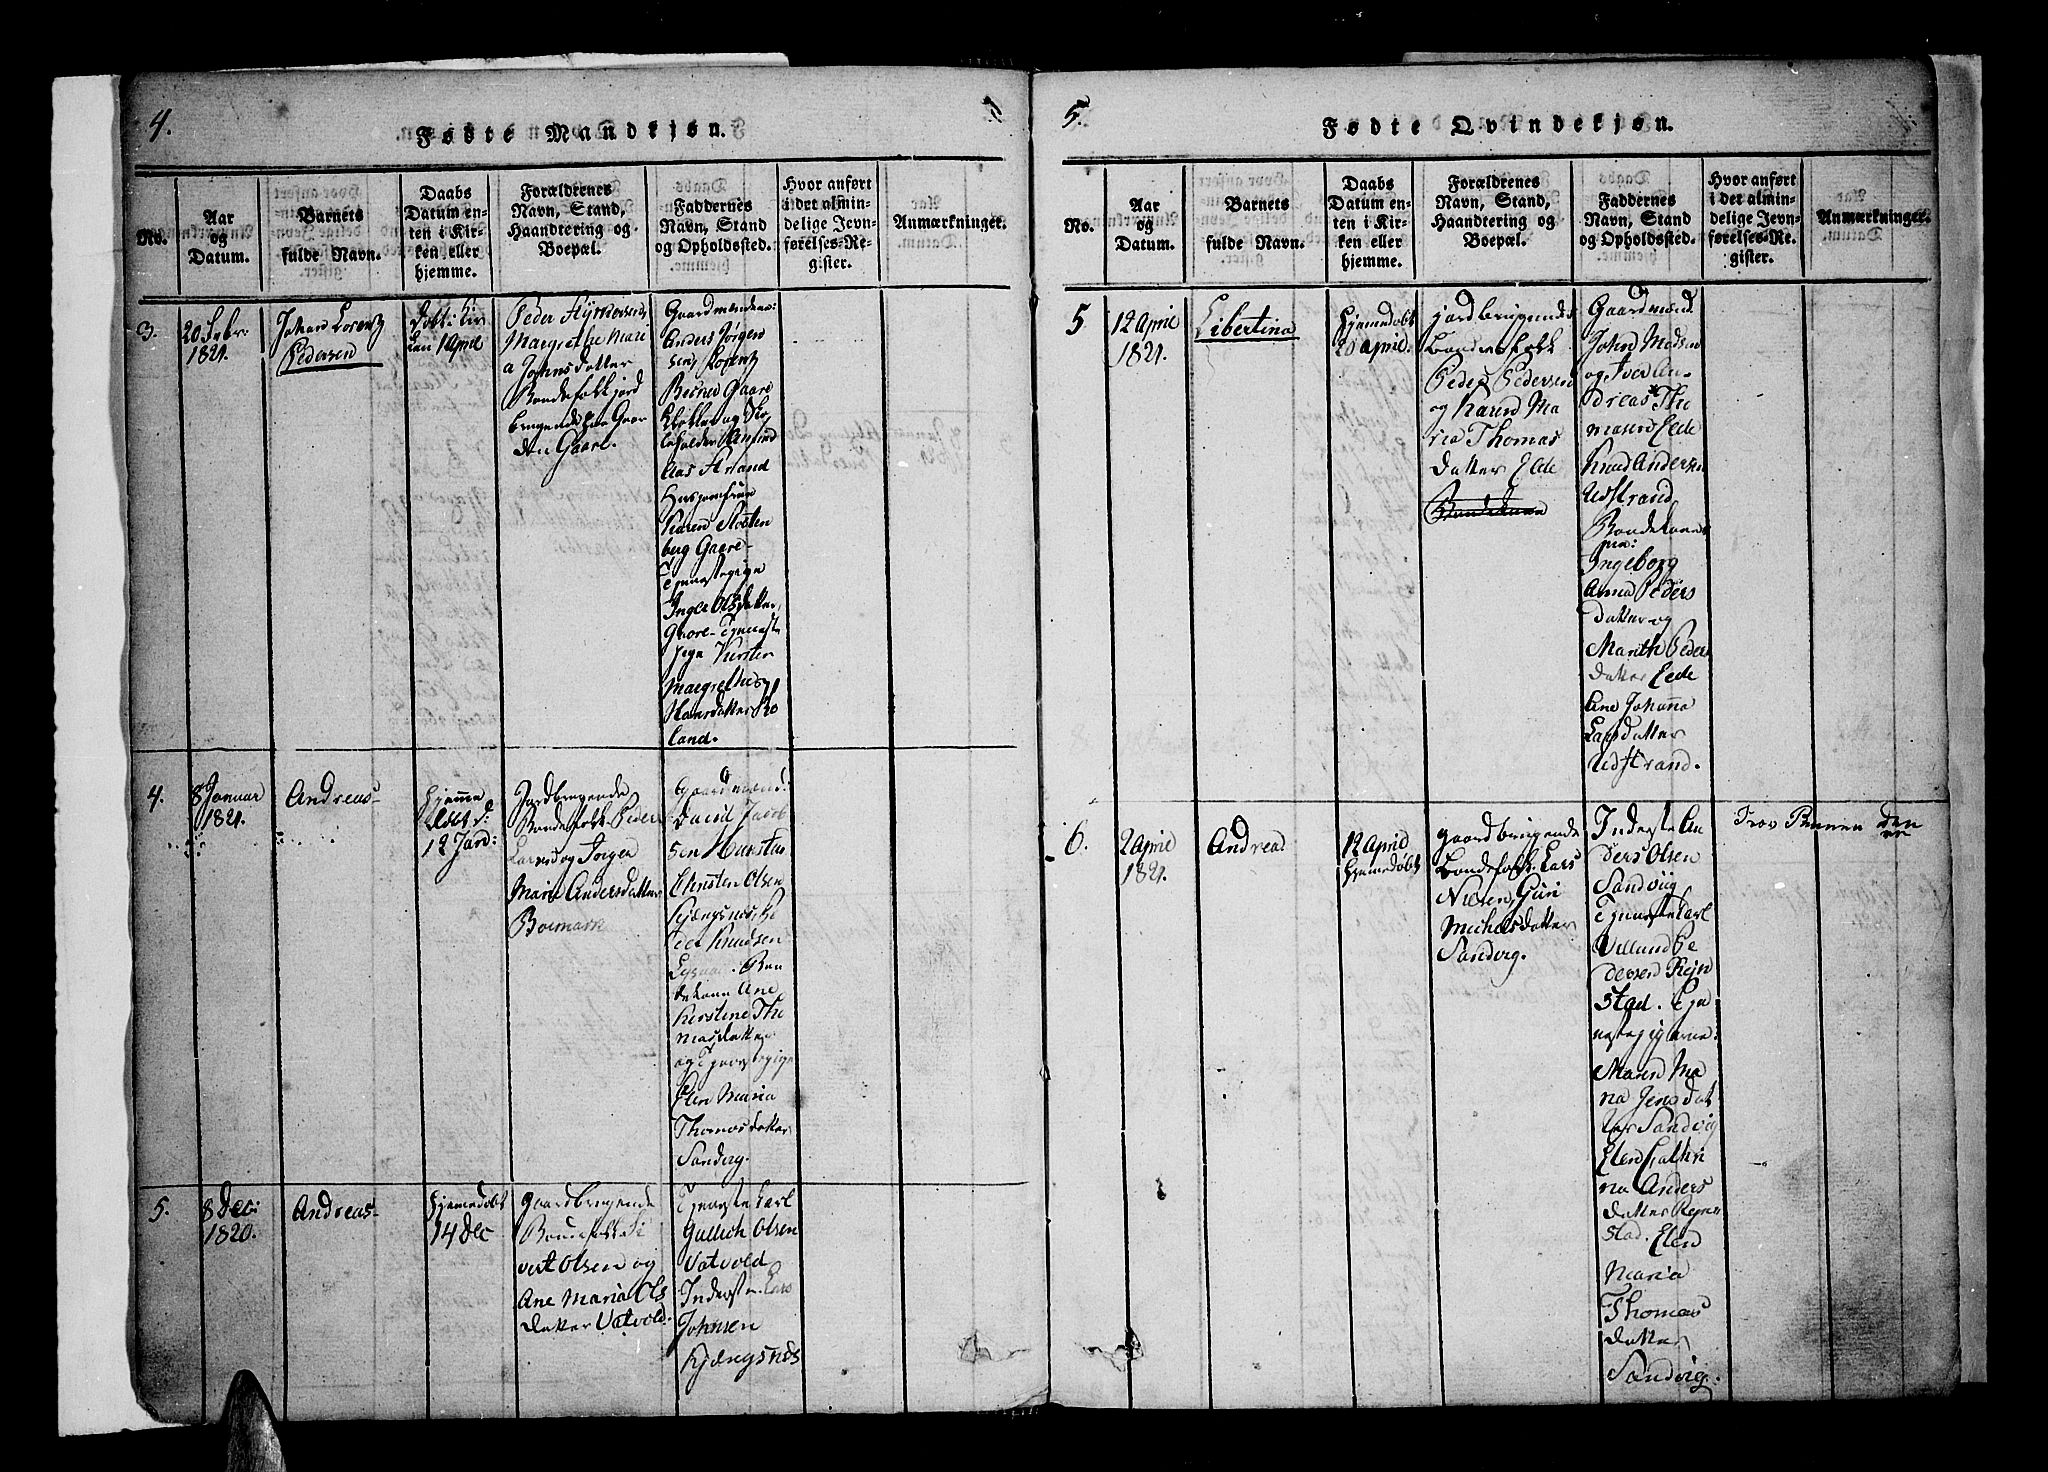 4.
Fødte Mandkjøn.
No.
Aar
og
Datum.
Barnets
fulde Navn.
Daabs
Datum en-
ten i Kir-
ken eller
hjemme.
Forældrenes
Navn, Stand,
Haandtering og
Boepæl.
Faddernes
Navn, Stand
og Opholdssted.
Hvor anført
i det almin-
delige Jevn-
førelses-Re-
gister.
Anmærkninger.
3.
20 Febr:
1821.
Johan Lorentz
Pedersen
Døbt i Kir
ken 1 April
Peder
Margrethe Mari
a Johnsdatter
Bondefolk jord
brugende paa Gaar
den Gaare.
Gaardmændene:
Anders Jørgen
sen, Lorentz
Gaare
Klokker og Sko
leholder
Strand
Huusjomfrue
Karen
berg Gaare-
Tjenestepige
Inger Olsdatter,
Gaare- Tjeneste
pige Kirsten
Margrethe
Hansdatter Ro
land.
4.
8 Januar
1821.
Andreas
Hjemme
døbt d:
12 Jan:
Jordbrugende
Bondefolk Peder
Larsen og Jørgen
Marie Andersdatter
Boemark
Gaardmænd:
David Jacob
sen
Christen Olsen
Kjængsnes, Pe
der Knudsen
Bon
dekone Ane
Kirstine Tho
masdatter
og Tjenestepige
Elen Maria
Thomasdatter
Sandvig.
5.
8 Dec:
1820.
Andreas
Hjemedøbt
14 Dec
Gaardbrugende
Bondefolk Si
vert Olsen og
Ane Maria Ols
datter Vatvold.
Tjeneste Karl
Gullich Olsen
Vatvold
Inderste Lars
Johnsen
Kjængsnes
5.
Fødte Qvindekjøn.
No.
Aar
og
Datum.
Barnets
fulde Navn.
Daabs
Datum en-
ten i Kir-
ken eller
hjemme.
Forældrenes
Navn, Stand,
Haandtering og
Boepæl.
Faddernes
Navn, Stand
og Opholdssted.
Hvor anført
i det almin-
delige Jevn-
førelses-Re-
gister.
Anmærkninger.
5
12 April
1821.
Libertina
Hjemedøbt
20 April.
jordbrugende
Bondefolk
Peder Pedersen
og Karen Ma
ria Thomas
datter Elde
Bondekone
Gaardmænd
John Madsen
og Iver An
dreas Tho
masen Elde
Knud Andersen
Udstrand,
Bondekoner
ne:
Ingeborg
Anna Peders
datter og
Marith Peders
datter Elde
Ane Johanna
Larsdatter
Udstrand.
6.
2 April
1821.
Andrea
12 April
Hjemedøbt
Gaardbrugende
Bondefolk Lars
Nilsen, Guri
Michelsdatter
Sandvig.
Inderste An
ders Olsen
Sandviig
Tjeneste Karl
Villum Pe
dersen Rejn
stad. Tje
nestepigerne:
Maren Ma
ria Jensdat
ter Sandvig
Elen Cathri
na Anders
datter Rejn
stad. Elen
Maria
Thomas
datter
Sandvig.